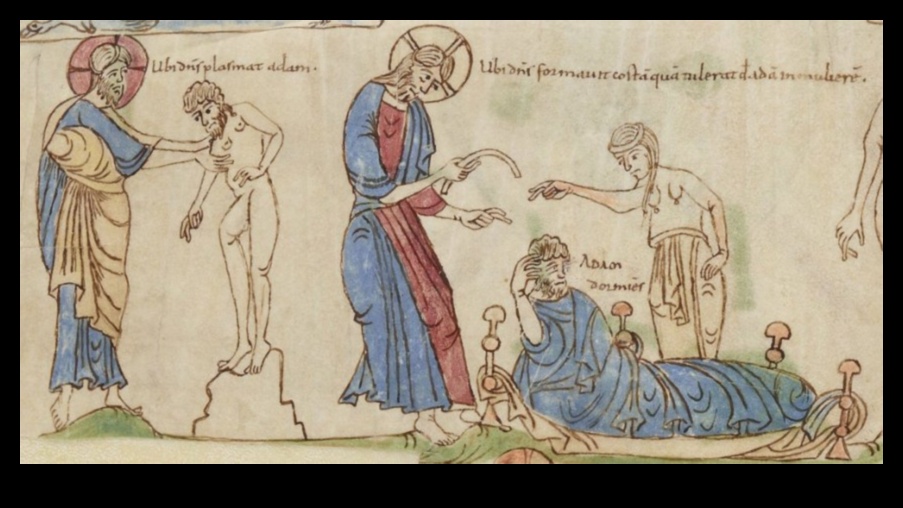 Ubi dn̄s plasmat adam.
Ubi dn̄s formauit costā quā tulerat d̄ adā in mulierē.
Adam
dormiēs